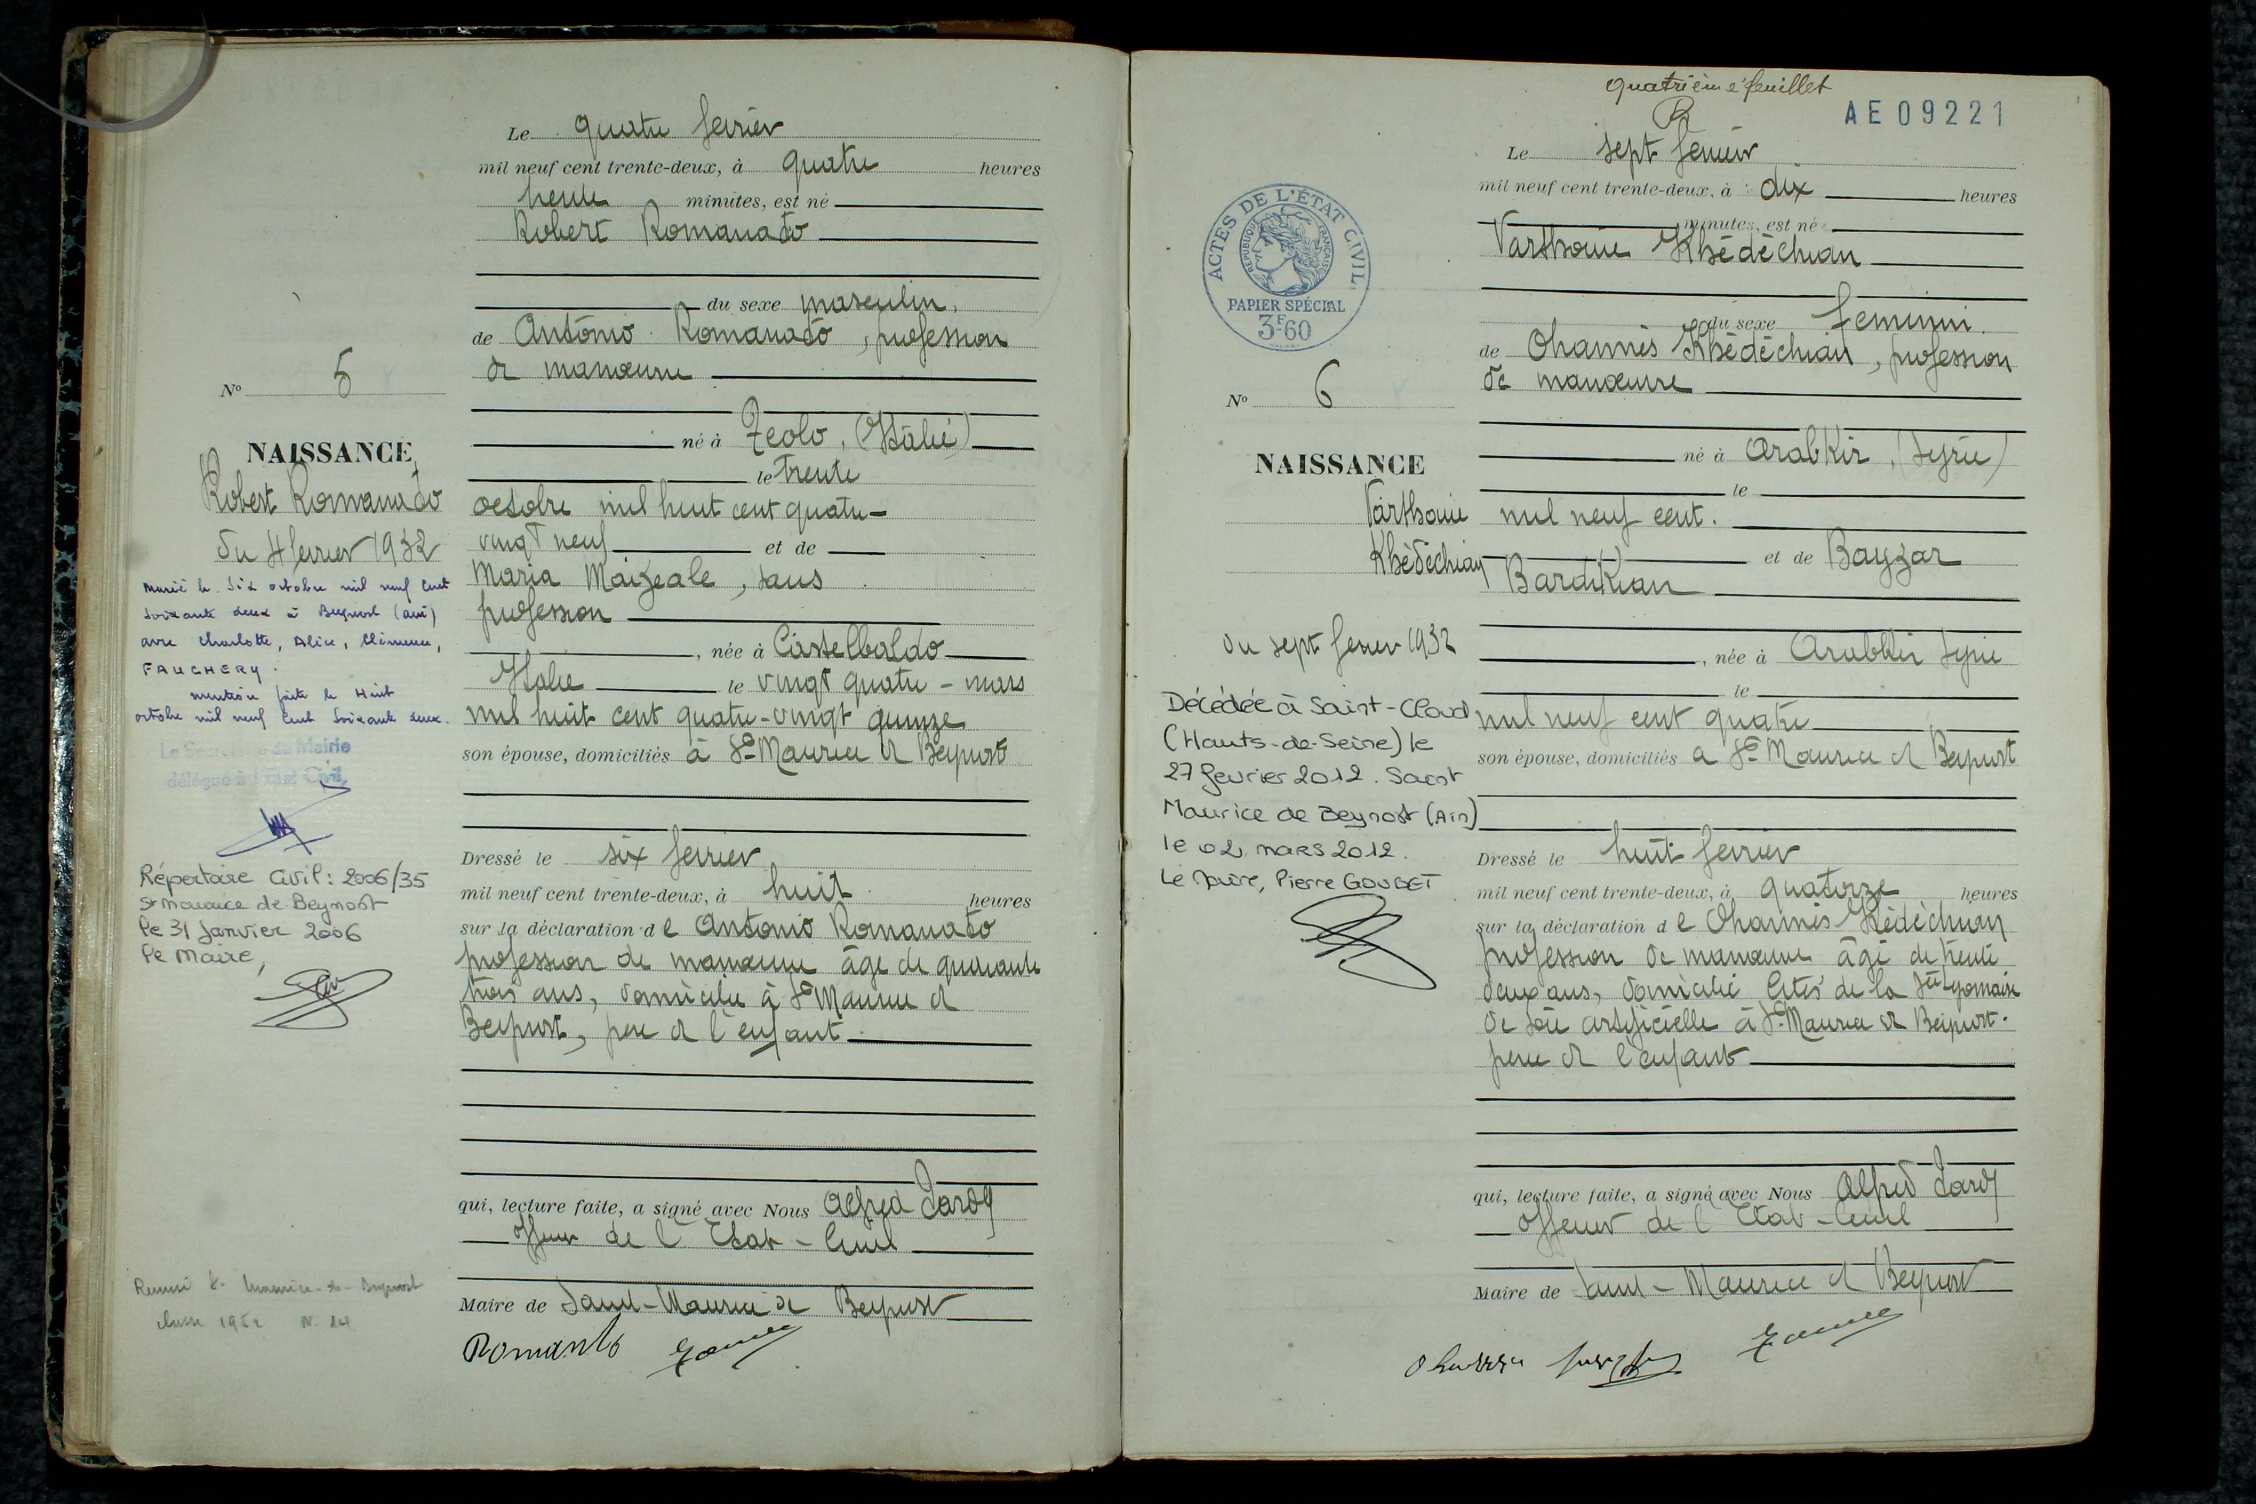 Le quatre fevrier
mil neuf cent trente-deux, à quatre heures
trente minutes, est né
Robert Romanato
du sexe masculin,
de Antonio Romanato, profession
de manœuvre
né à Teolo, (Italie)
le trente
octobre mil huit cent quatre-
vingt neuf et de
Maria Maizeale, sans
profession
, née à Castelbaldo
Italie le vingt quatre - mars
mil huit cent quatre-vingt quinze
son épouse, domiciliés à St Maurice de Beynost
Dressé le six fevrier
mil neuf cent trente-deux, à huit heures
sur la déclaration de Antonio Romanato
profession de manœuvre âge de quarante
trois ans, domicilié à St Maurice de
Beynost, pere de l'enfant
qui, lecture faite, a signé avec Nous Alfred Jardy
officier de l'Etat-Civil
Maire de Saint-Maurice de Beynost
Romanato
No 5
NAISSANCE
Robert Romanato
du 4 fevrier 1932
Marié le six octobre mil neuf cent
soixante deux à Beynost (Ain)
avec Charlotte, Alice, Clémence,
FAUCHERY.
mention faite le Huit
octobre mil neuf cent soixante deux.
Le Secrétaire de Mairie
délégué à l'Etat Civil,
Répertoire Civil : 2006/35
St Maurice de Beynost
le 31 Janvier 2006
le Maire,
Maurice-de-Beynost
classe 1952 N. 14
quatrième feuillet
AE 09221
Le sept fevrier
mil neuf cent trente-deux, à dix heures
minutes, est né
Varthouie Khédéchian
du sexe feminin.
de Ohannès Khédéchian, profession
de manœuvre
né à Arabkir, (Syrie)
le
mil neuf cent.
et de Bayzar
Bardikian
, née à Arabkir Syrie
le
mil neuf cent quatre
son épouse, domiciliés a St Maurice de Beynost
Dressé le huit fevrier
mil neuf cent trente-deux, à quatorze heures
sur la déclaration de Ohannès Kédéchian
profession de manœuvre âgé de trente
deux ans, domicilié Cités de la Sté Lyonnaise
de soie artificielle à St Maurice de Beynost.
pere de l'enfant
qui, lecture faite, a signé avec Nous Alfred Jardy
officier de l'Etat-Civil
Maire de Saint-Maurice de Beynost
ACTES DE L'ÉTAT CIVIL
REPUBLIQUE FRANÇAISE
PAPIER SPÉCIAL
3F60
No 6
NAISSANCE
Varthouie
Khédéchian
du sept fevrier 1932
Décédée à Saint-Cloud
(Hauts-de-Seine) le
27 fevrier 2012. Saint
Maurice de Beynost (Ain)
le 02 mars 2012.
Le Maire, Pierre GOUBET